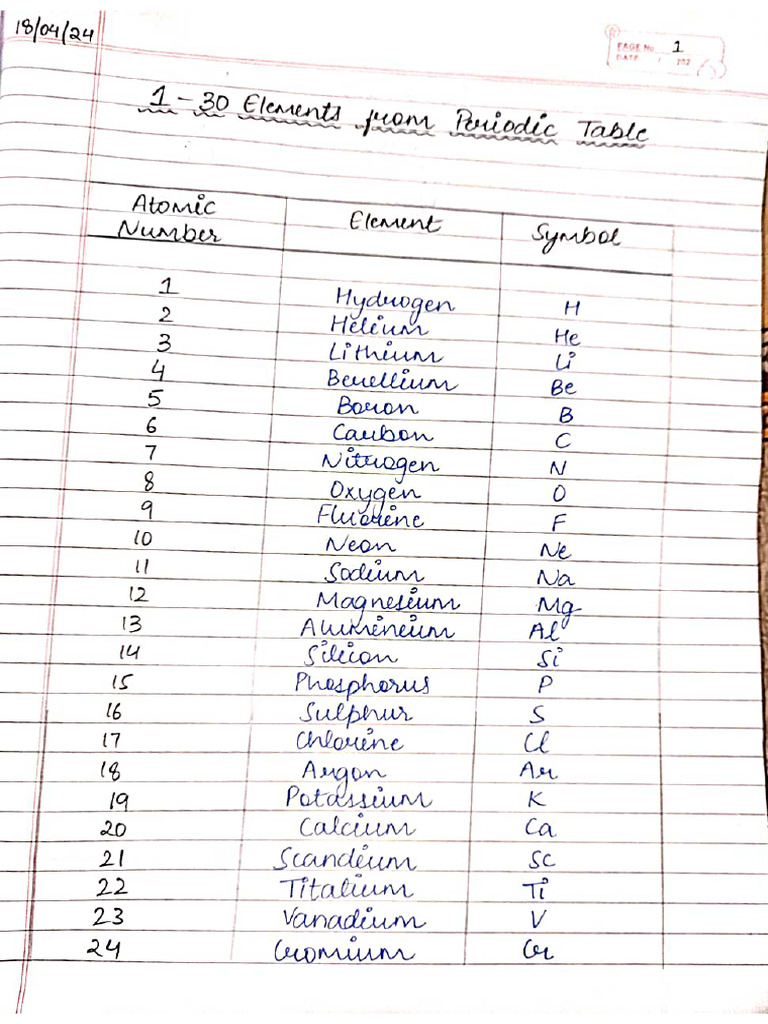 18/04/24
PAGE No. 1
DATE / / 202
1 - 30 Elements from Periodic Table
Atomic Number Element Symbol
1 Hydrogen H
2 Helium He
3 Lithium Li
4 Berellium Be
5 Boron B
6 Carbon C
7 Nitrogen N
8 Oxygen O
9 Fluorine F
10 Neon Ne
11 Sodium Na
12 Magnesium Mg
13 Alumineium Al
14 Silicon Si
15 Phosphorus P
16 Sulphur S
17 Chlorine Cl
18 Argon Ar
19 Potassium K
20 Calcium Ca
21 Scandium Sc
22 Titalium Ti
23 Vanadium V
24 Cromium Cr